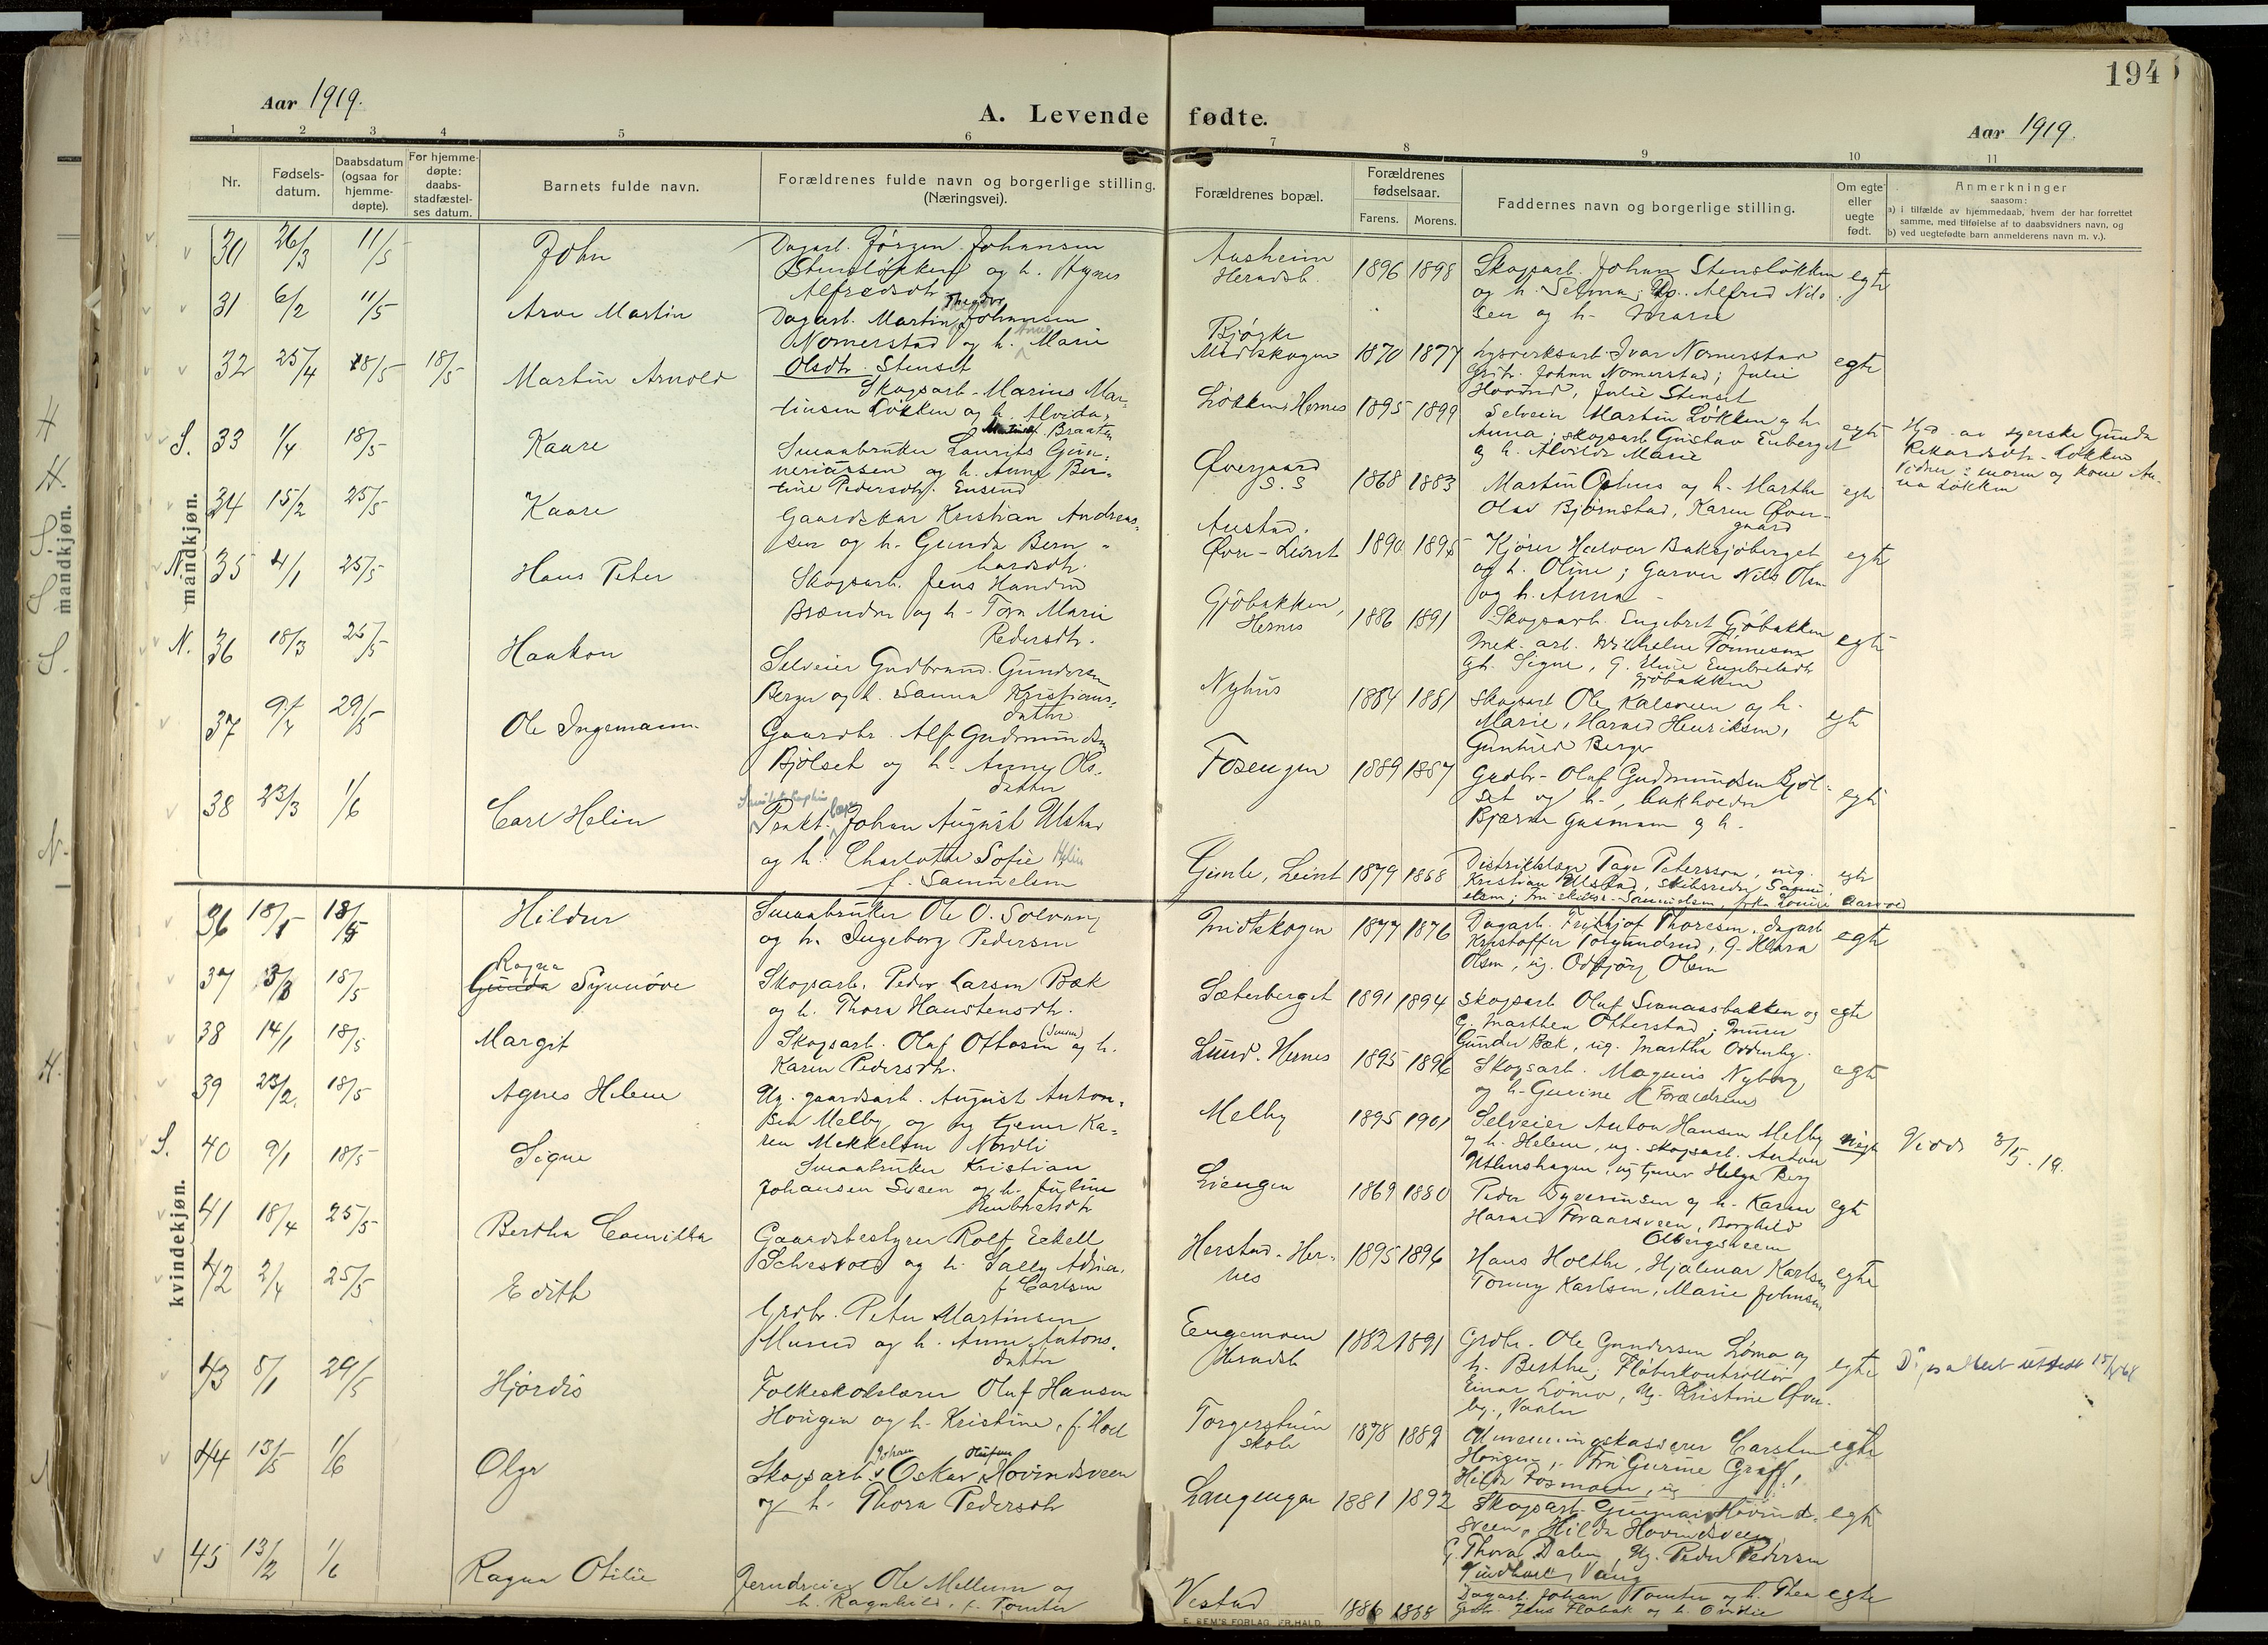 194
Aar 1919.
A. Levende fødte.
Aar 1919.
1 2 3 4 5 6 7 8 9 10 11
Nr.
Fødsels-
datum.
Daabsdatum
(ogsaa for
hjemme-
døpte).
For hjemme-
døpte:
daabs-
stadfæstel-
ses datum.
Barnets fulde navn.
Forældrenes fulde navn og borgerlige stilling.
(Næringsvei).
Forældrenes bopæl.
Forældrenes
fødselsaar.
Farens. Morens.
Faddernes navn og borgerlige stilling.
Om egte
eller
uegte
født.
Anmerkninger
saasom:
a) i tilfælde av hjemmedaab, hvem der har forrettet
samme, med tilføielse af to daabsvidners navn, og
b) ved uegtefødte barn anmelderens navn m. v.).
mandkjøn.
30 26/3 11/5 John
Dagarb. Jørgen Johansen
Stensløkken og h. Agnes
Alfredsdtr.
Aasheim
Heradsb. 1896 1898
Skogsarb. Johan Stensløkken
og h. Selma; Alfred Nils-
sen og h. Marie
egte
31 6/2 11/5 Arve Martin
Dagarb. Martin Theodor Johansen
Nomerstad og h. Anne Marie
Olsdtr. Stenset
Bjørke
Midtskogen 1870 1877
Ivar Nomerstad
Grbr. Johan Nomerstad; Julie
Hovind, Julie Stenset
egte
32 25/4 18/5 18/5 Martin Arnold
Skogsarb. Marius Mar-
tinsen Løkken og h. Alvida,
Braaten
Løkken, Hernes 1895 1899
Selveier Martin Løkken og h.
Anna; skogsarb. Gustav Enberget
og h. Alvilde Marie
egte
Hjd. av syerske Gunda
Rikardsdtr. Løkken
Vidner: morm og kone An-
na Løkken
S. 33 1/4 18/5 Kaare
Smaabruker Laurits Gun-
neriussen og h. Anne Ber-
tine Pedersdtr. Ensend
Øvergaard
S. S 1868 1883
Martin Ophus og h. Marthe
Olav Bjørnstad, Karen Øver-
gaard
egte
34 15/2 25/5 Kaare
Gaardskar Kristian Andreas-
sen og h. Gunda Bern-
hardsdtr.
Austad,
Øvre-Leiret 1890 1895
Kjører Halvor Baksjøberget
og h. Oline; Garver Nils Olsen
og h. Anna
egte
N. 35 4/1 25/5 Hans Peter
Skogsarb. Jens Handrud
Brænden og h. Tora Marie
Pedersdtr.
Gjøbakken,
Hernes 1886 1891
Skogsarb. Engebret Gjøbakken
Mek. arb. Wilhelm Tønnesen
gh. Signe, G. Eline Engebretsdtr.
Gjøbakken
egte
N. 36 18/3 25/5 Haakon
Selveier Gudbrand Gundersen
Berger og h. Sanna Kristians-
datter
Nyhus 1884 1881
Skogsarb Ole Kalsveen og h.
Marie, Harald Henriksen,
Gunhild Berger
egte
37 9/4 29/5 Ole Ingemann
Gaardbr. Alf Gudmundsen
Bjølset og h. Anny Ols-
datter
Fosengen 1889 1887
Grdbr. Olaf Gudmundsen Bjøl-
set og h., bakholdn
Bjarne Gasmann og h.
egte
38 23/3 1/6 Carl Helin
Prakt. læge Johan August Ulstad
og h. Charlotte Sofie Helin
f. Samuelsen
Gimle, Leiret 1879 1888
Distriktslæge Tage Petersson, ing.
Kristian Ulstad, skibsreder Samu-
elsen; fru skibsr. Samuelsen, frk. Louise Aarvold
egte
kvindekjøn.
36 18/1 18/5 Hildur
Smaabruker Ole O. Solvang
og h. Ingeborg Pedersen
Midtskogen 1877 1876
Dagarb. Fritjof Thoresen, dagarb
Kristoffer Torgundrud, G. Klara
Olsen, ug. Odbjørg Olsen
egte
37 3/3 18/5 Ragna
Gunda Synnøve
Skogsarb. Peder Larsen Bæk
og h. Thora Haustensdtr.
Sæterberget 1891 1894
Skogsarb Oluf Svanaasbakken og
G. Marthea Otterstad; Murer
Gunder Bæk, ug. Martha Oddenby.
egte
38 14/1 18/5 Margit
Skogsarb. Olaf Ottosen og h.
Karen Pedersdtr.
Lund. Hernes 1895 1896
Skogsarb. Magnus Nyborg
og h. Gurine Forældrene
egte
39 23/2 18/5 Agnes Helene
Ug. gaardsarb. August Anton-
sen Melby og ug tjener Ka-
ren Mekkelsen Nordli
Melby 1895 1901
Selveier Anton Hansen Melby
og h. Helene, ug. skogsarb. Anton
Utlenshagen, ug tjener Helga Berg
uegte
Viede 3/5. 19.
S. 40 9/1 18/5 Signe
Smaabruker Kristian
Johansen Sveen og h. Juline
Liengen 1869 1880
Peder Syversensen og h. Karen
Harald Foraarsveen, Borghild
Olbergsveen
egte
41 18/4 25/5 Bertha Camilla
Gaardsbestyrer Rolf Eckell
Schesvold og h. Sally Adina,
f. Carlsen
Herstad. Her-
nes 1895 1896
Hans Holthe, Hjalmar Karlsen
Tommy Karlsen, Marie Johnsen
egte
42 2/4 25/5 Edith
Grdbr. Peter Martinsen
Murud og h. Anne Antons-
datter
Engemoen
Heradsb 1882 1891
Grdbr. Ole Gundersen Lømo og
h. Berthe; Fløterkontrollør
Einar Lømo, Ug. Kristine Øver-
by, Vaaler
egte
43 5/1 29/5 Hjørdis
Folkeskolelærer Oluf Hansen
Hougen og h. Kristine, f. Hoel
Torgerstuen
skole 1878 1889
Carsten
Hougen, Fru Gurine Graff,
Hilda Fosmoen, ug
egte
44 13/5 1/6 Olga
Skogsarb. Johan Oskar Olufsen Hovindsveen
og h. Thora Pedersdtr
Langengen 1881 1892
Skogsarb. Gunnar Hovind-
sveen, Hilda Hovindsveen,
G. Thora Dalen, Ug. Peder Pedersen
Vindhol, Vang
egte
45 13/2 1/6 Ragna Otilie
Ole Mellum og
h. Ragnhild, f. Tomter
Vestad 1886 1888
Dagarb. Johan Tomter og h. Thea
Grdbr. Jens Flobak og h. Ovidie
egte
E. SEM'S FORLAG, FR.HALD.